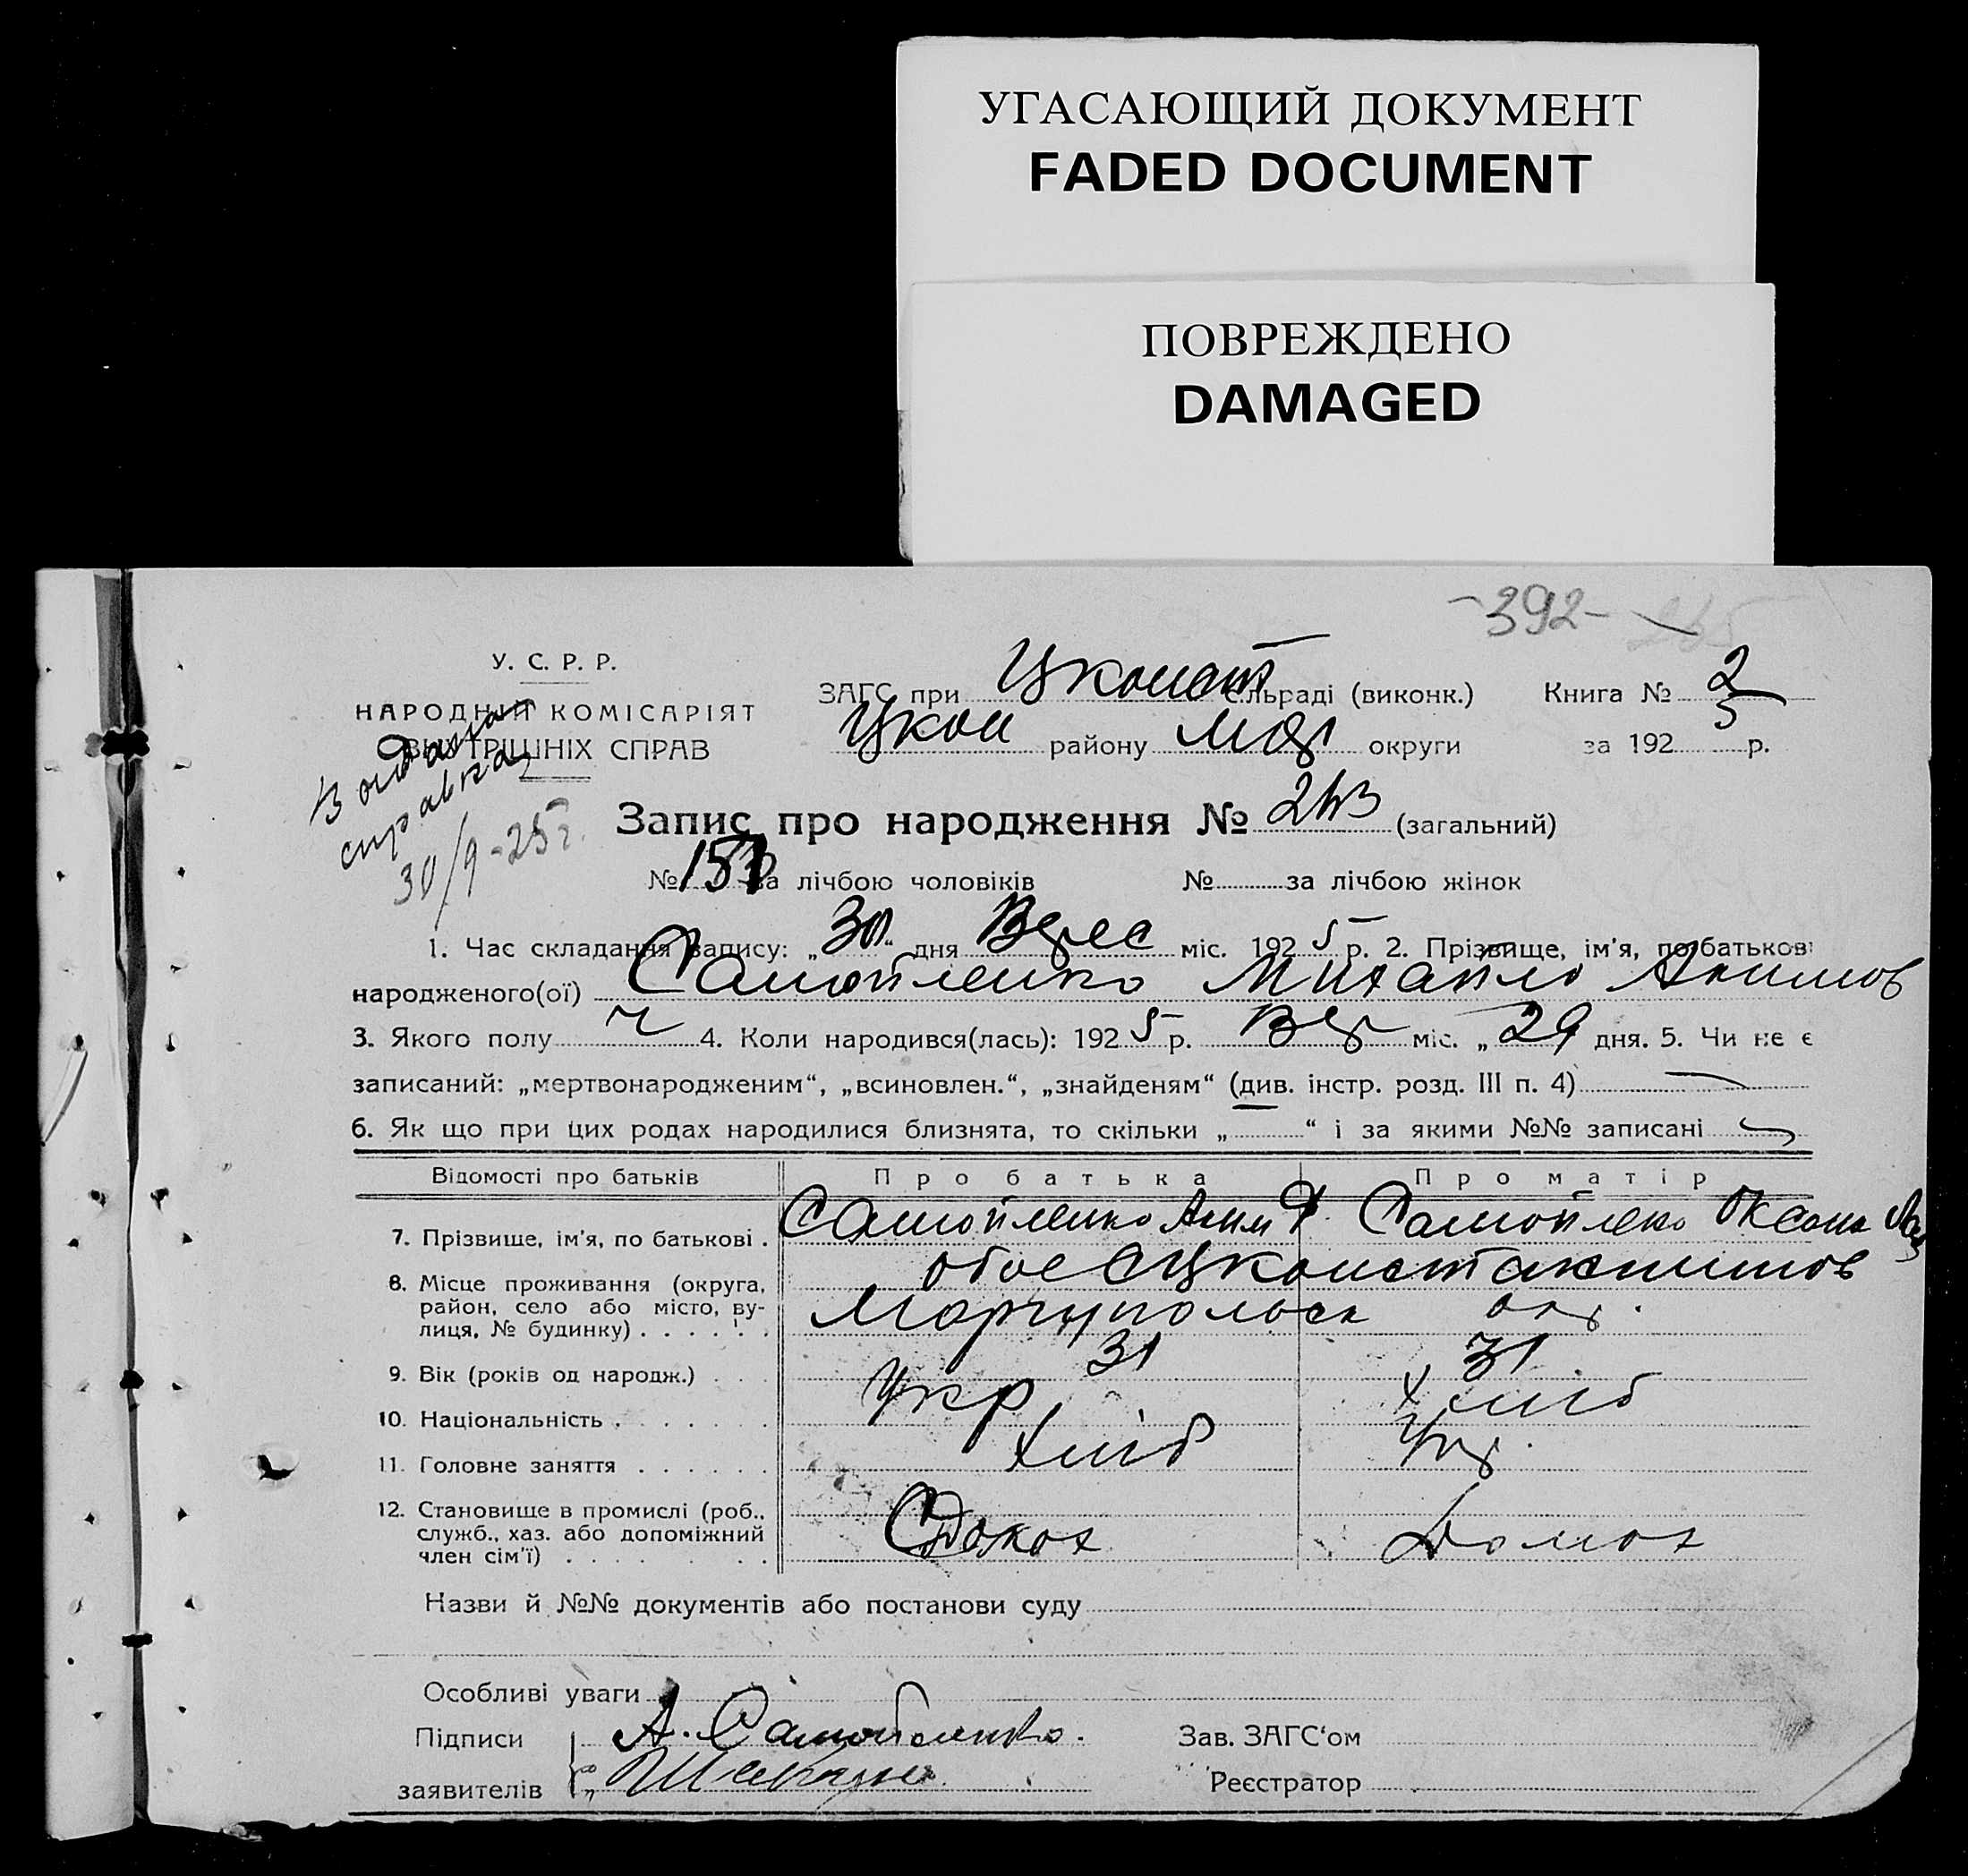 УГАСАЮЩИЙ ДОКУМЕНТ
FADED DOCUMENT
ПОВРЕЖДЕНО
DAMAGED
-392-
У. С. Р. Р.
НАРОДНИЙ КОМІСАРІЯТ
ВНУТРІШНІХ СПРАВ
справка
30/9-25 г.
ЗАГС при Цконст сільраді (виконк.) Книга № 2
Цкон району Мар округи за 192 5 р.
Запис про народження № 243 (загальний)
№ 151 за лічбою чоловіків № за лічбою жінок
1. Час складання запису: „30“ дня Верес міс. 192 5 р. 2. Прізвище, ім'я, по батькові
народженого(ої) Самойленко Михайло Акимов
3. Якого полу ч 4. Коли народився(лась): 192 5 р. Вер міс. „29 дня. 5. Чи не є
записаний: „мертвонародженим“, „всиновлен.“, „знайденям“ (див. інстр. розд. III п. 4) —
6. Як що при цих родах народилися близнята, то скільки „ “ і за якими №№ записані
Відомості про батьків Про батька Про матір
7. Прізвише, ім'я, по батькові . Самойленко Аким Самойленко Оксана
8. Місце проживання (округа, район, село або місто, вулиця, № будинку) обоє Цконстантинов
Маріупольск окр.
9. Вік (років од народж.) 31 31
10. Національність Укр хліб
11. Головне заняття хліб Укр.
12. Становище в промислі (роб., служб., хаз. або допоміжний член сім'ї) Домох
Назви й №№ документів або постанови суду
Особливі уваги
Підписи А. Самойленко. Зав. ЗАГС'ом
заявителів Реєстратор